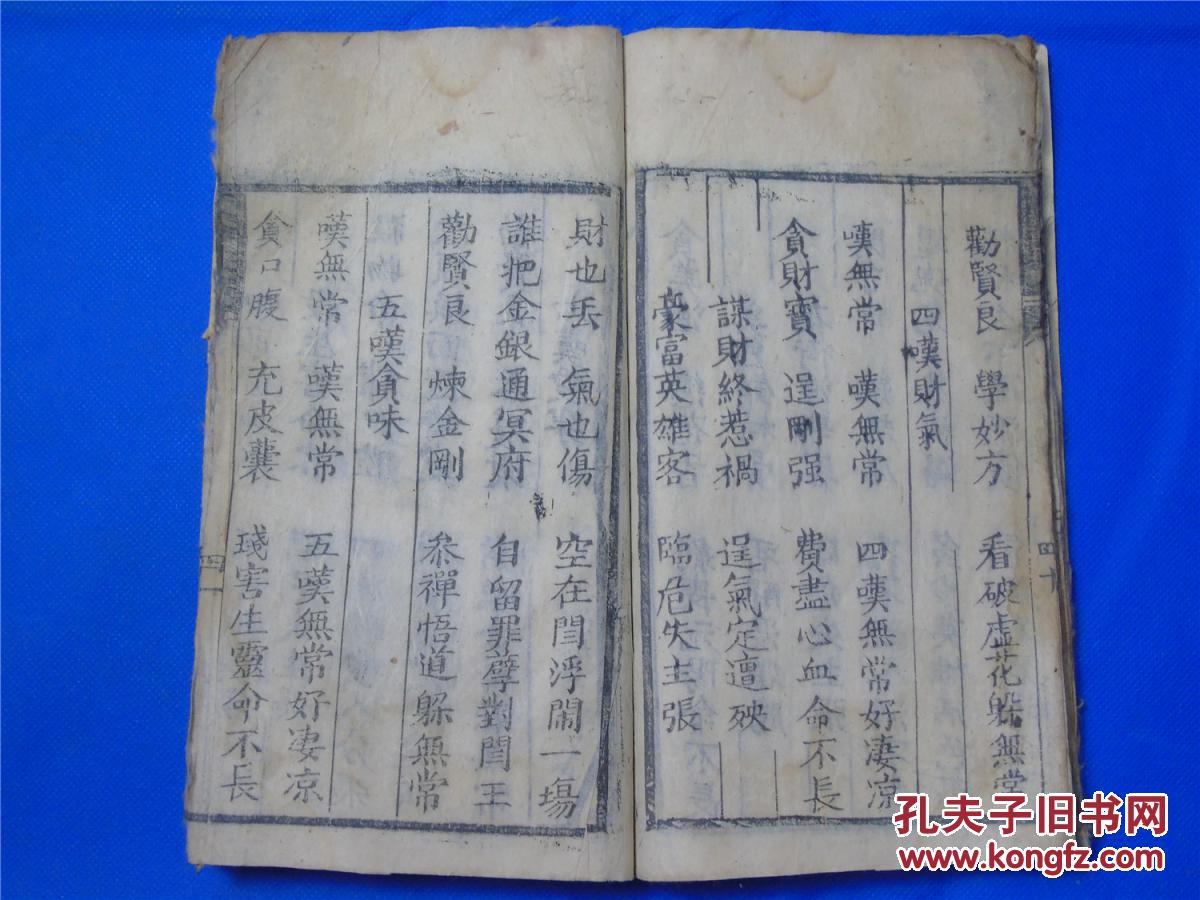 勸賢良 學妙方 看破虛花躲無常
四嘆財氣
嘆無常 嘆無常 四嘆無常好凄凉
貪財寶 逞剛强 費盡心血命不長
謀財終惹禍 逞氣定遭殃
豪富英雄客 臨危失主張
財也丢 氣也傷 空在閻浮鬧一場
誰把金銀通冥府 自留罪孽對閻王
勸賢良 煉金剛 叅禪悟道躲無常
五嘆貪味
嘆無常 嘆無常 五嘆無常好凄凉
貪口腹 充皮囊 殘害生靈命不長
四十
四一
孔夫子旧书网
www.kongfz.com